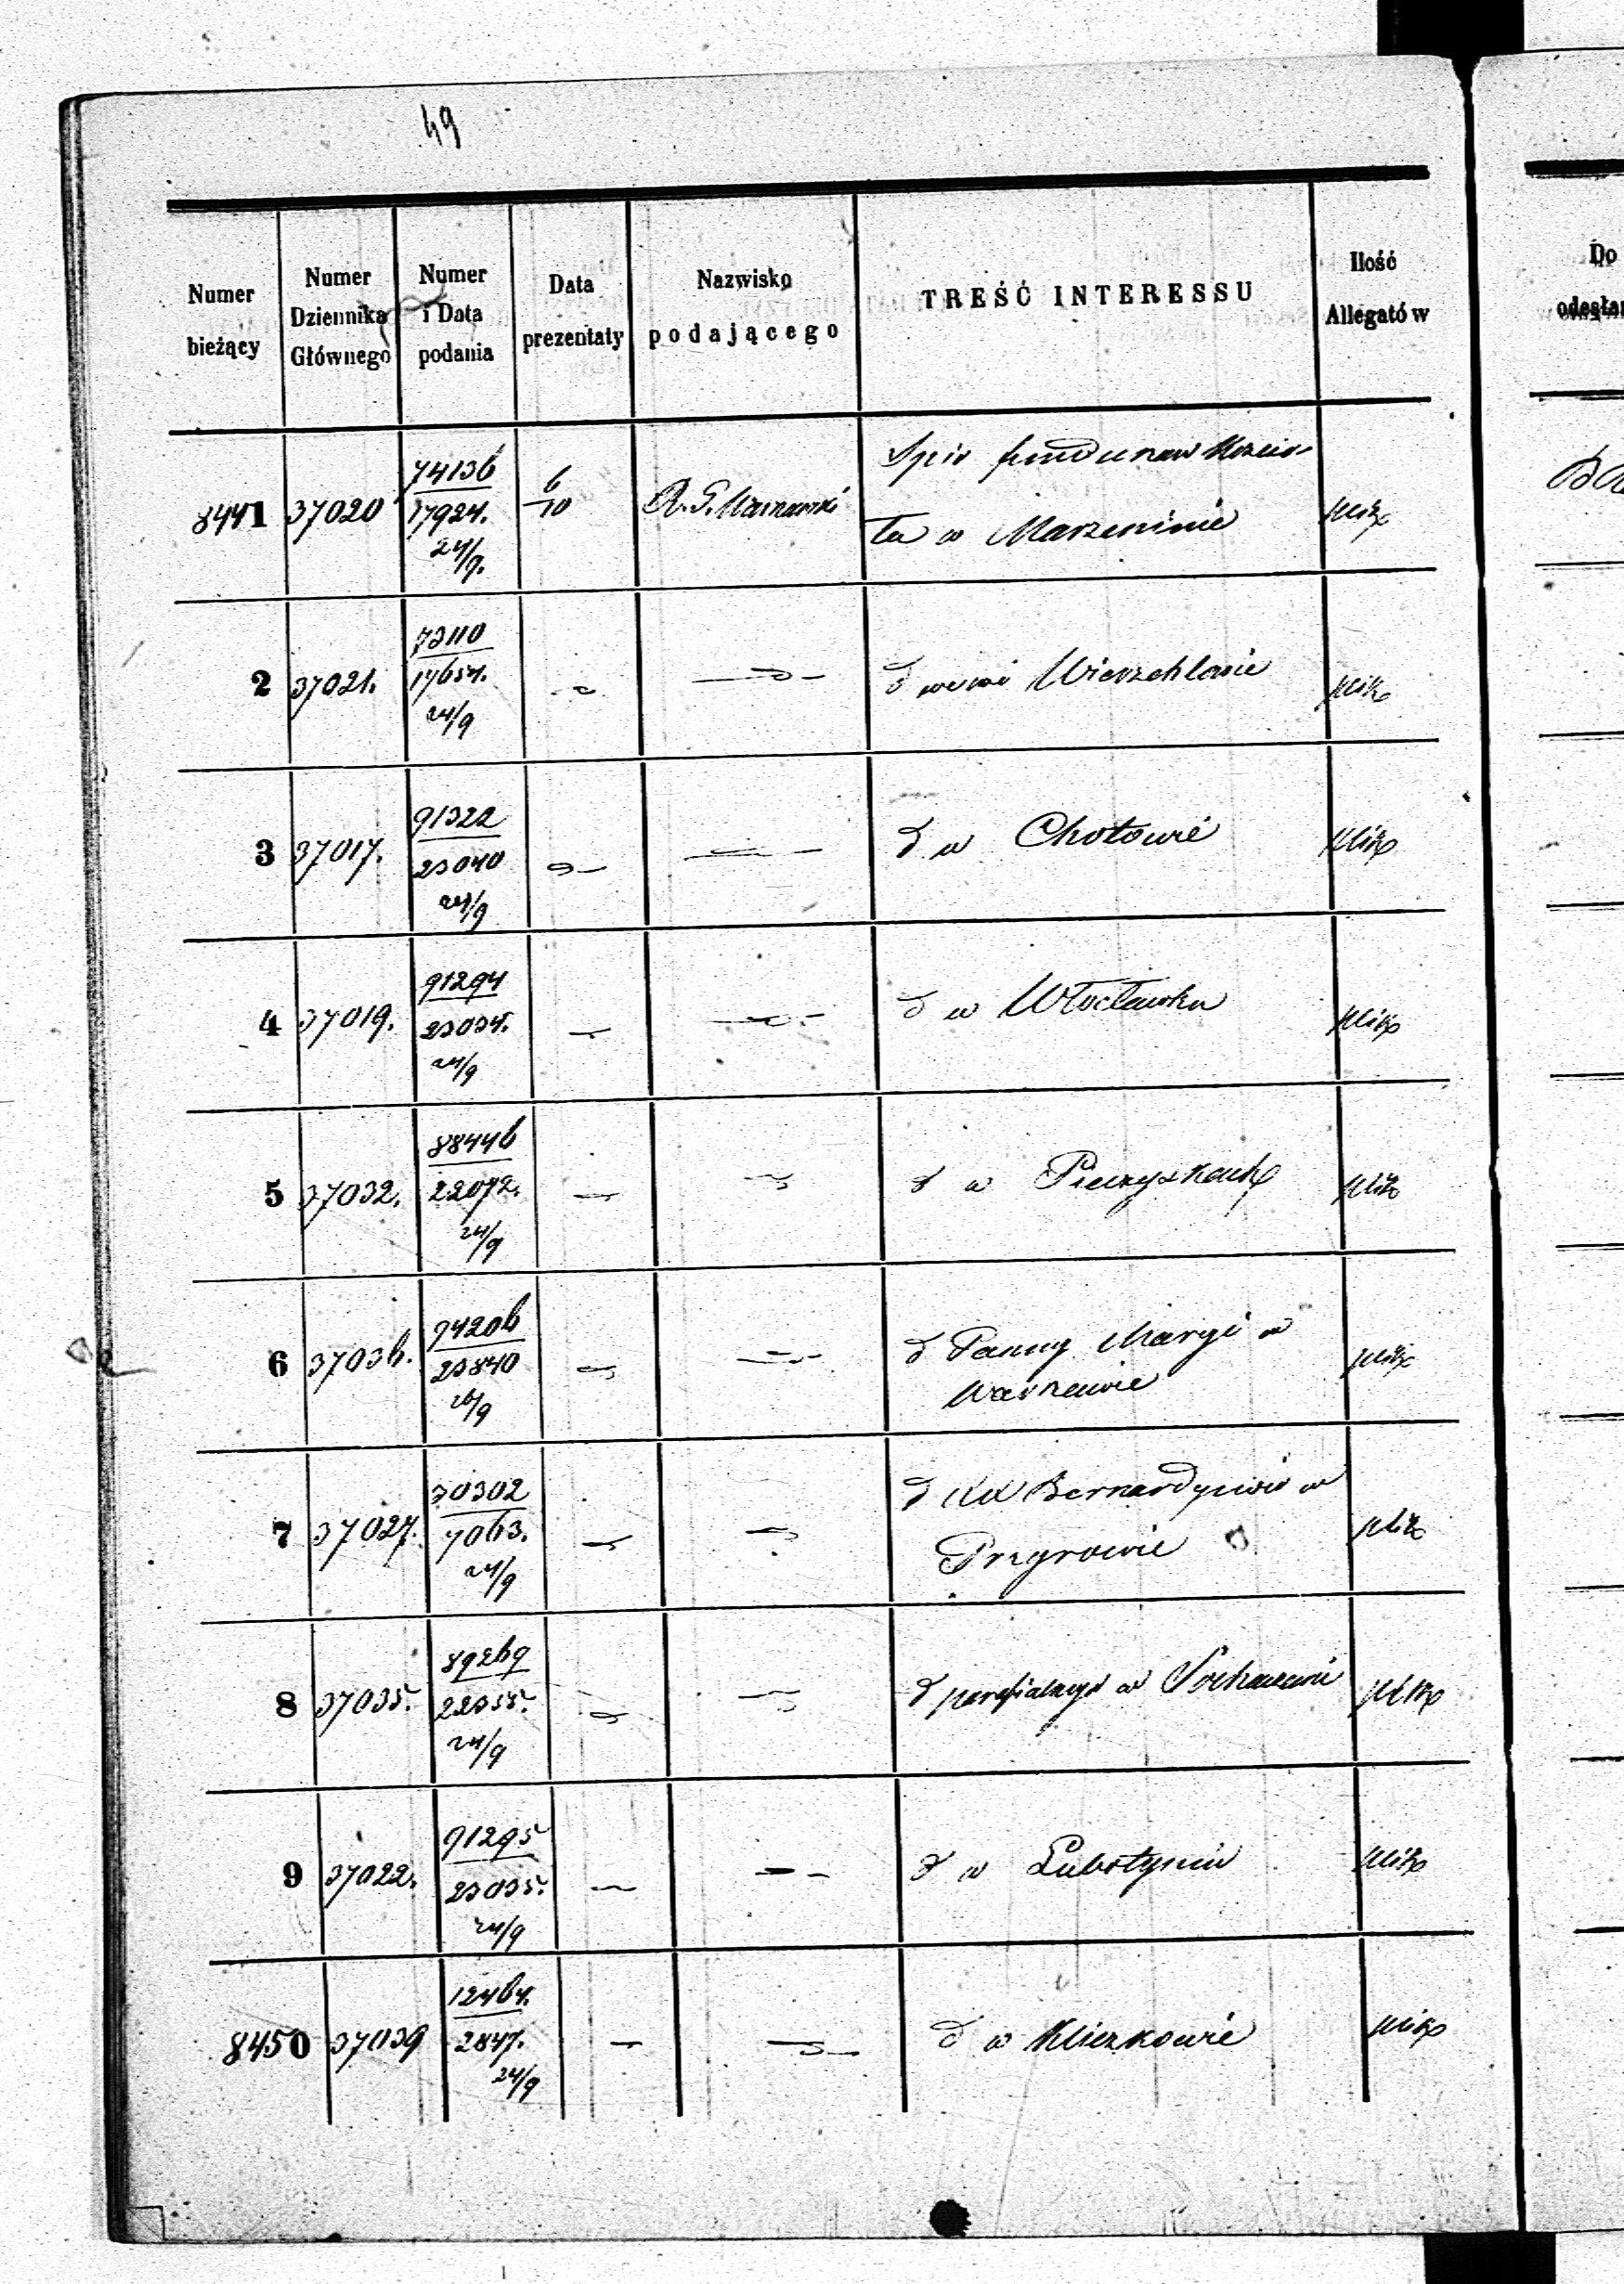 49
Numer bieżący
Numer Dziennika Głównego
Numer i Data podania
Data prezentaty
Nazwisko podającego
TREŚĆ INTERESSU
Ilość Allegatów
Do
odesłan
8441 37020 74136 6
17924. 10
24/9.
Spis
ła w Marzeninie
2 37021. 73110
17654.
24/9
we wsi Wierzchlasie
3 37017. 91322
23040
24/9
d w Chotowie
4 37019. 91294
23034.
24/9
d w Włocławku
5 37032. 88446
22072.
24/9
d w Pieczyskach
6 37036. 94206
23840
26/9
d Panny Maryi w
Warszawie
7 37027. 30302
7063.
24/9
d XX Bernardynów w
Przyrowie
8 37035. 89269
22355.
24/9
d parafialnego w Sochaczewie
9 37022. 91295
23035.
24/9
d w Lubotyniu
8450 37039 12464.
2847.
24/9
d w Kliczkowie